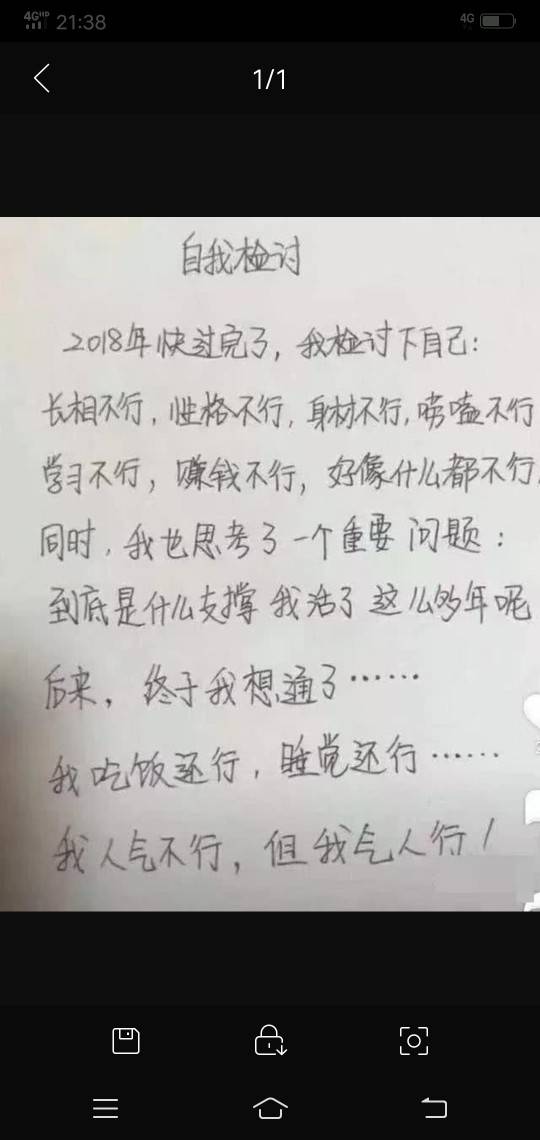 4G HD 21:38 4G
1/1
自我检讨
2018年快过完了，我检讨下自己：
长相不行，性格不行，身材不行，唠嗑不行
学习不行，赚钱不行，好像什么都不行，
同时，我也思考了一个重要问题：
到底是什么支撑我活了这么多年呢
后来，终于我想通了……
我吃饭还行，睡觉还行……
我人气不行，但我气人行！